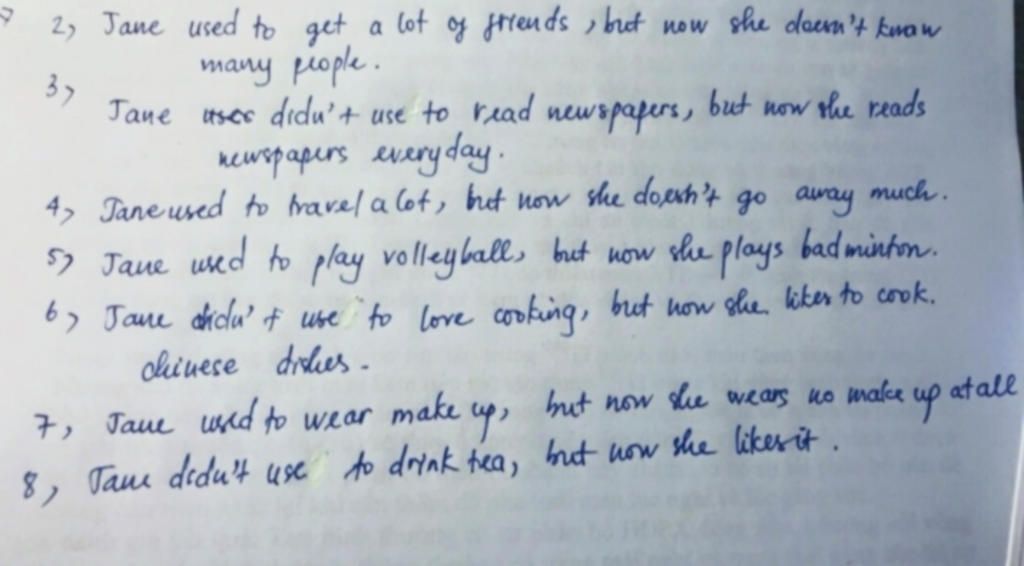 2, Jane used to get a lot of friends, but now she doesn't know
many people.
3,
Jane didn't use to read newspapers, but now she reads
newspapers everyday.
4, Jane used to travel a lot, but now she doesn't go away much.
5, Jane used to play volleyball, but now she plays badminton.
6, Jane didn't use to love cooking, but now she likes to cook.
chinese dishes.
7, Jane used to wear make up, but now she wears no make up at all
8, Jane didn't use to drink tea, but now she likes it.